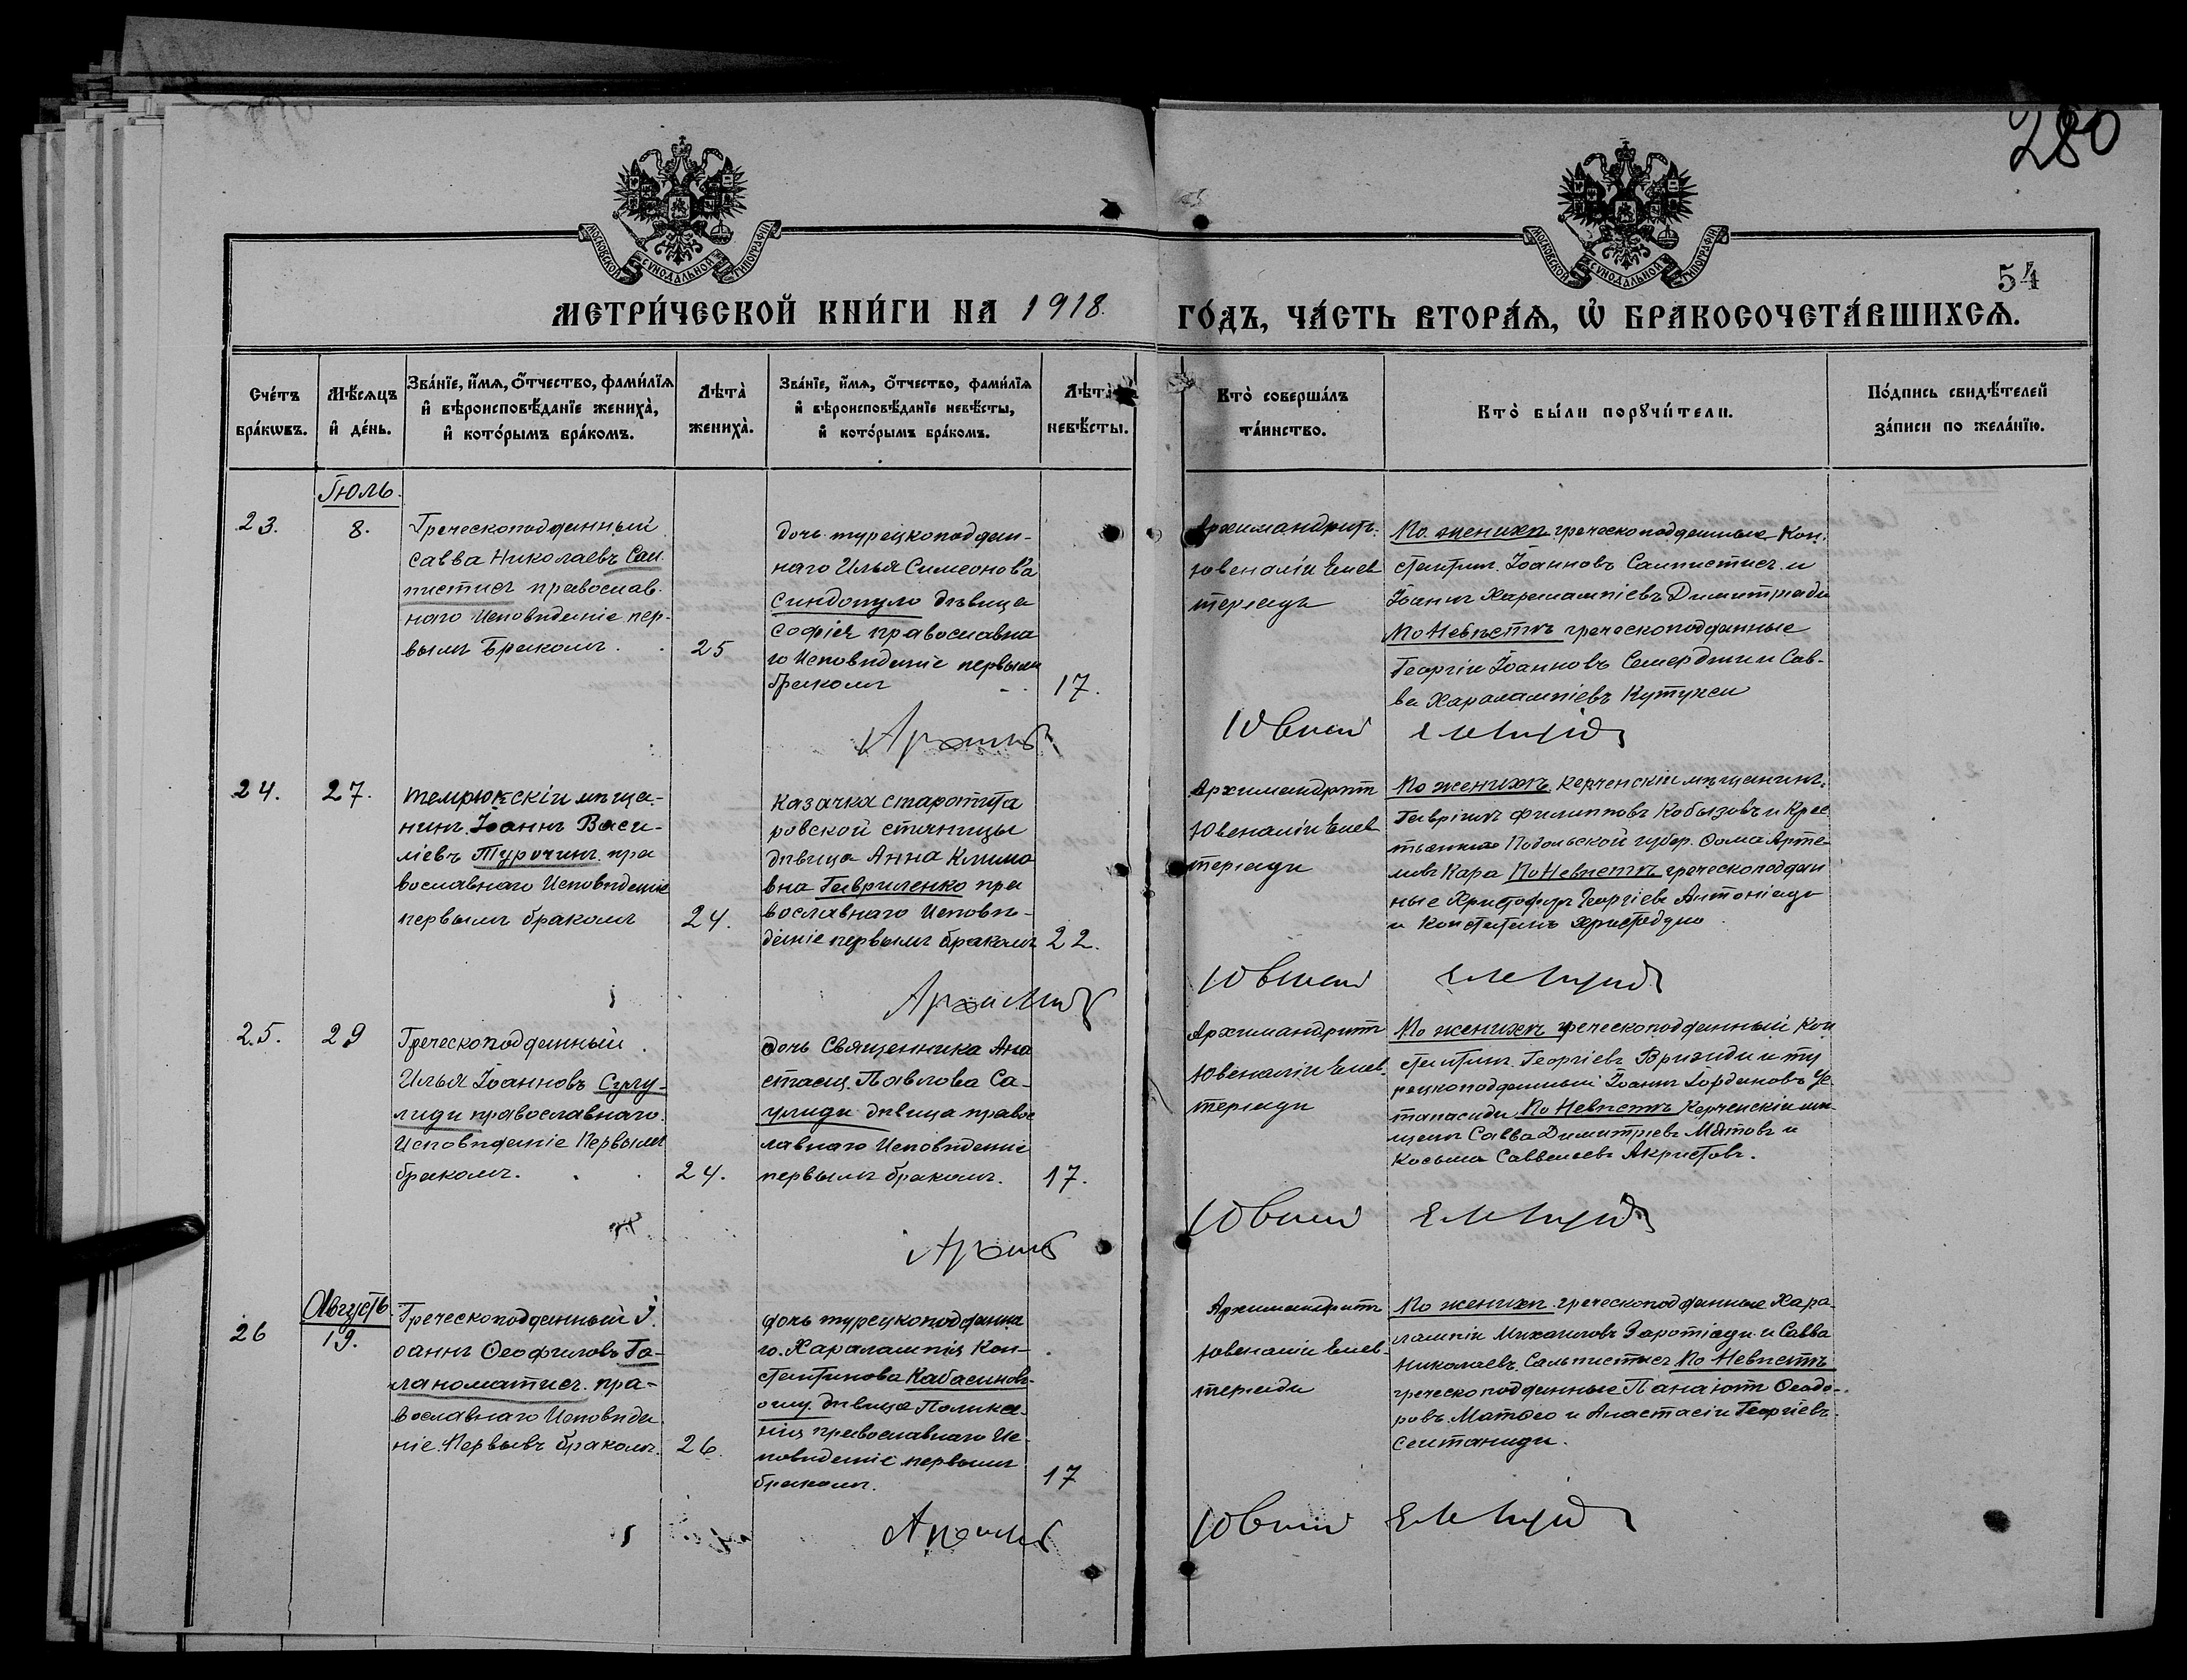 280
54
МОСКОВСКОЙ СѴНОДАЛЬНОЙ ТИПОГРАФІИ
МОСКОВСКОЙ СѴНОДАЛЬНОЙ ТИПОГРАФІИ
МЕТРИ́ЧЕСКОЙ КНИ́ГИ НА 1918.
ГО́ДЪ, ЧА́СТЬ ВТОРА́Ѧ, Ѡ҆ БРАКОСОЧЕТА́ВШИХСѦ.
Сче́тъ
бра́кѡвъ.
Мѣ́сѧцъ
и҆ де́нь.
Зва́нїе, и҆́мѧ, ѻ҆́тчество, фами́лїѧ
и҆ вѣроисповѣ́данїе жениха̀,
и҆ кото́рымъ бра́комъ.
Лѣта̀
жениха̀.
Зва́нїе, и҆́мѧ, ѻ҆́тчество, фами́лїѧ
и҆ вѣроисповѣ́данїе невѣ́сты,
и҆ кото́рымъ бра́комъ.
Лѣта̀
невѣ́сты.
Кто̀ соверша́лъ
та́инство.
Кто̀ бы́ли порꙋчи́тели.
По́дпись свидѣ́телей
за́писи по жела́нїю.
Іюль.
23.
8.
Греческоподданный
Савва Николаевъ Сал
пистисъ православ-
наго Исповѣденіе пер-
вымъ Бракомъ.
25
дочь турецкоподдан-
наго Илья Симеонова
Синдопуло дѣвица
Софія православна
го Исповѣденіе первымъ
бракомъ
17.
Архимандритъ
Ювеналій Елев
теріадъ
По женихѣ греческоподданные Кон-
стантинъ Іоанновъ Салпистисъ и
Іоаннъ Харалампіевъ Димитріади
По Невѣстѣ греческоподданные
Георгій Іоанновъ Семерджи и Сав-
ва Харалампіевъ Кутукси
24.
27.
Темрюкскій мѣща-
нинъ Іоаннъ Васи-
ліевъ Турчинъ пра
вославнаго Исповѣденіе
первымъ бракомъ
24.
Казачка старотита
ровской станицы
дѣвица Анна Клима
вна Гавриленко пра
вославнаго Исповѣ-
деніе первымъ бракомъ
22.
Архимандритъ
Ювеналій Елев
теріади
По женихѣ Керченскій мѣщанинъ
Гавріилъ Филипповъ Кобызовъ и Крес
тьянинъ Подольской губер. Ѳома Арте-
мовъ Кара По Невѣстѣ греческоподдан
ные Христофоръ Георгіевъ Антоніадъ
и Константинъ
25.
29
Греческоподданный
Илья Іоанновъ Сулу-
лиди православнаго
Исповѣденіе Первымъ
бракомъ.
24.
дочь Священника Ана
стасія Павлова Са-
улиди дѣвица правос
лавнаго Исповѣденіе
первымъ бракомъ.
17.
Архимандритъ
Ювеналій Елев-
теріади
По женихѣ греческоподданный Кон
стантинъ Георгіевъ Вризиди и ту
рецкоподданный Іоаннъ Іордановъ Ус
тапасиди По Невѣстѣ Керченскій мѣ-
щане Савва Димитріевъ Мятовъ и
Косьма Саввельевъ Акристовъ.
Августъ
26
19.
Греческоподданный І.
оаннъ Ѳеофиловъ Га-
ланоматисъ пра-
вославнаго Исповѣде
ніе Первымъ бракомъ.
26.
дочь турецкоподданна
го Харалампія Кон-
стантинова Кабасинов-
оглу дѣвица Полике-
нія православнаго Ис
повѣденіе первымъ
бракомъ.
17
Архимандритъ
Ювеналій Елев-
теріади
По женихѣ греческоподданные Хара-
лампій Михаиловъ Заротіади и Савва
Николаевъ Сальпистисъ По Невѣстѣ
греческоподданные Панаіотъ Ѳеодо-
ровъ Матѳео и Анастасій Георгіевъ
Сситаниди.